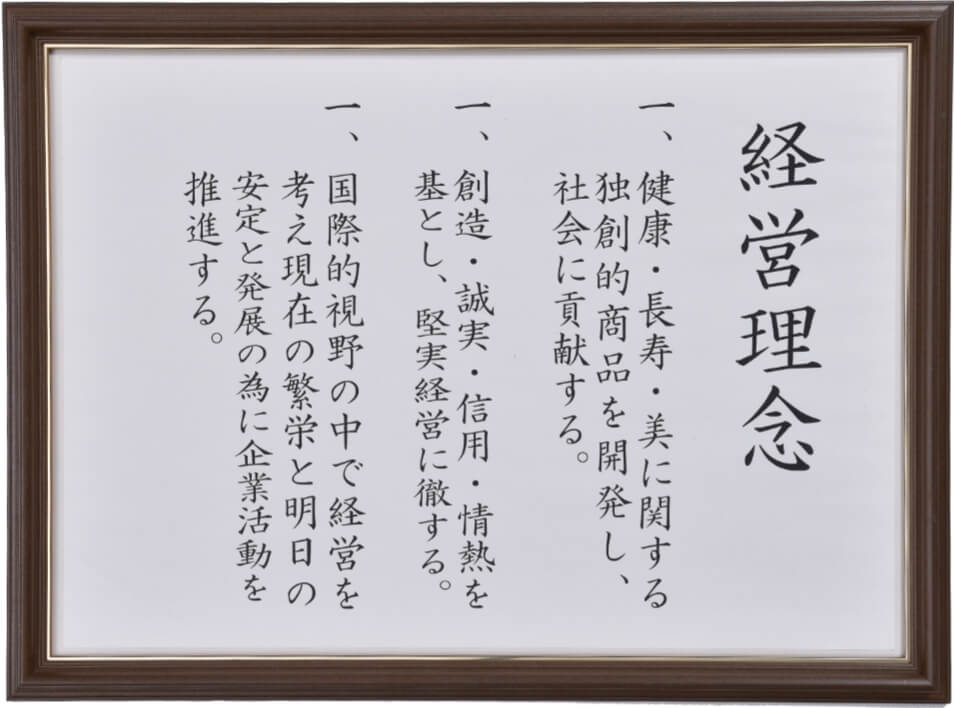 経営理念
一、健康・長寿・美に関する
独創的商品を開発し、
社会に貢献する。
一、創造・誠実・信用・情熱を
基とし、堅実経営に徹する。
一、国際的視野の中で経営を
考え現在の繁栄と明日の
安定と発展の為に企業活動を
推進する。